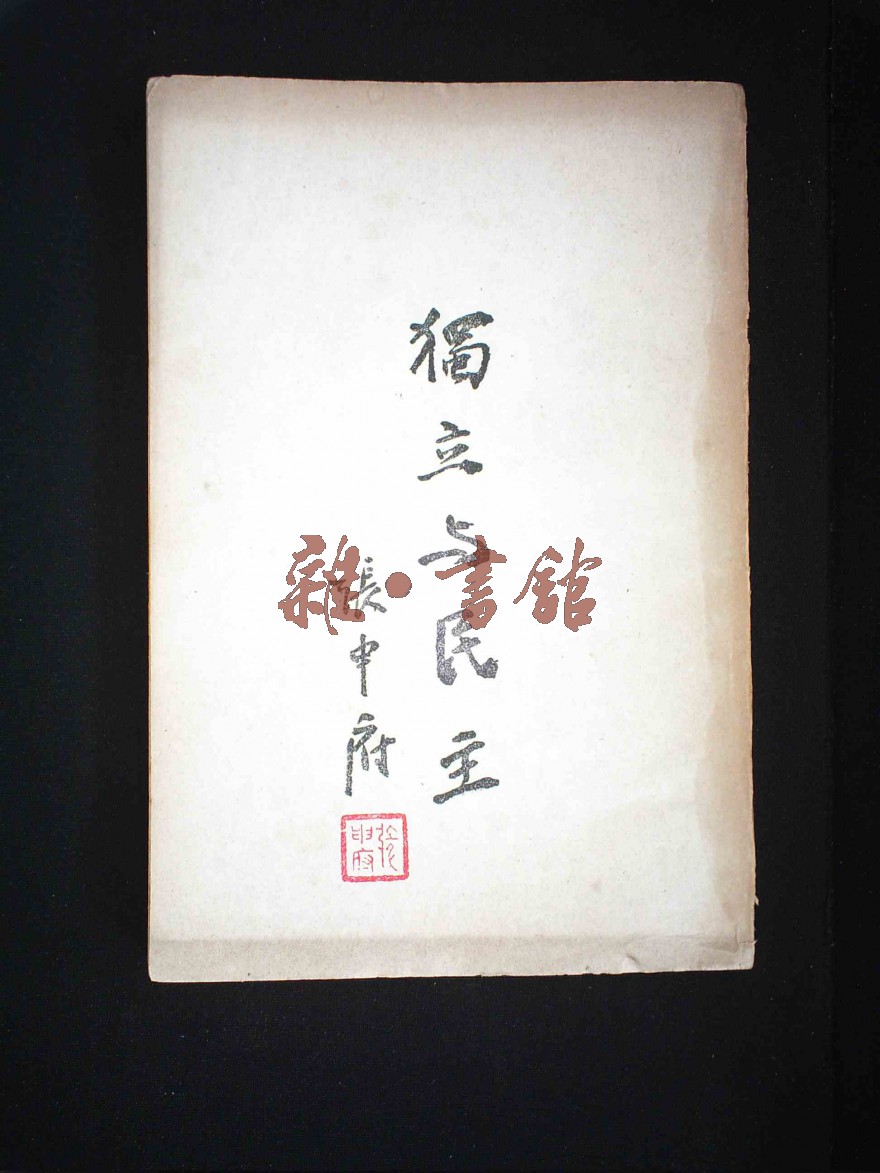 獨立与民主
張申府
張申府
雜·書館